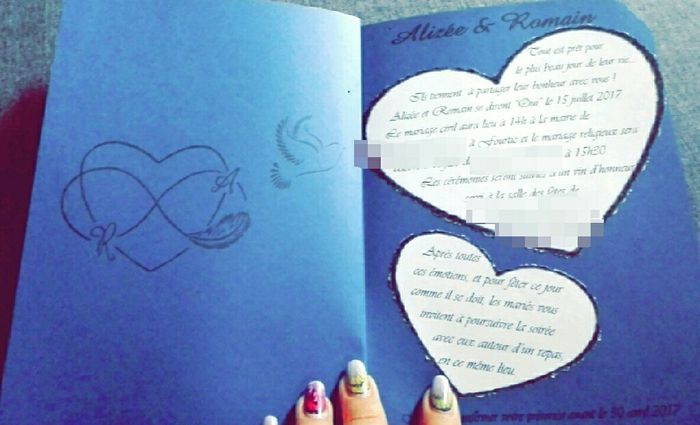 A
R
Alizée & Romain
Tout est prêt pour
le plus beau jour de leur vie...
Ils tiennent à partager leur bonheur avec vous !
Alizée et Romain se diront "Oui" le 15 juillet 2017
Le mariage civil aura lieu à 14h à la mairie de
à Fourtic et le mariage religieux sera
à 15h20
Les cérémonies seront suivies d'un vin d'honneur
à la salle des fêtes de
Après toutes
ces émotions, et pour fêter ce jour
comme il se doit, les mariés vous
invitent à poursuivre la soirée
avec eux autour d'un repas,
en ce même lieu.
confirmer votre présence avant le 30 avril 2017